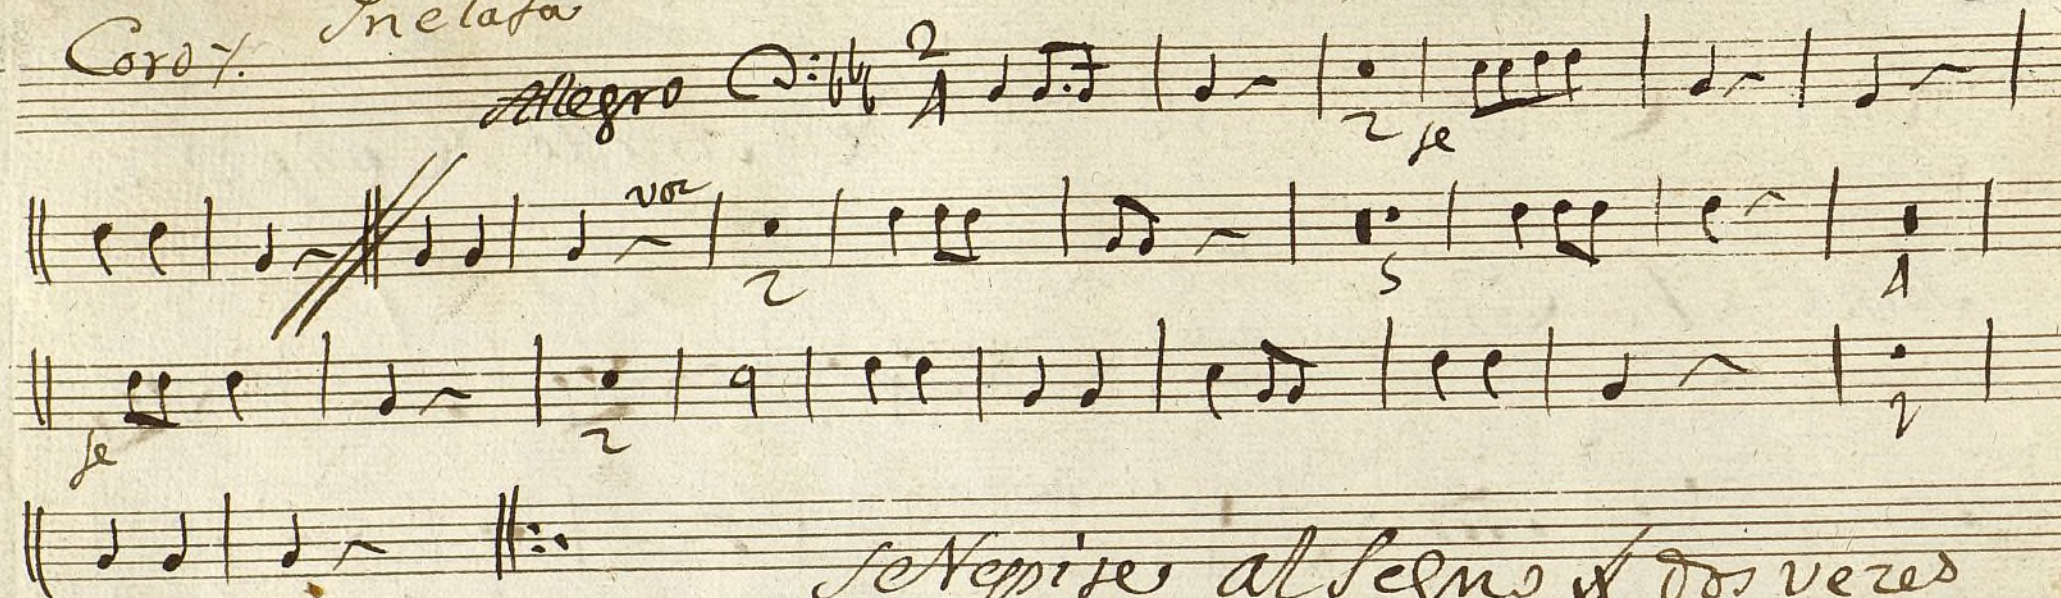 Coro
Allegro 2 4
2 se
voz
2 5 4
se 2 2
se Repite al Segno dos vezes